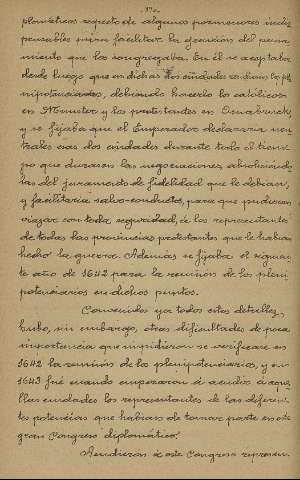 plomáticas respecto de algunos pormenores indis-
pensables para facilitar la ejecución del pensa-
miento que los congregaba. En él se aceptaba
desde luego que en dichas dos ciudades se reunieran los ple-
nipotenciarios, debiendo hacerlo los católicos
en Munster y los protestantes en Osnabruck,
y se fijaba que el Emperador declararía neu-
trales esas dos ciudades durante todo el tiem-
po que durasen las negociaciones, absolviéndo-
las del juramento de fidelidad que le debían,
y facilitaría salvo-conductos, para que pudieran
viajar con toda seguridad, á los representantes
de todas las provincias protestantes que le habían
hecho la guerra. Además se fijaba el siguien-
te año de 1642 para la reunión de los pleni-
potenciarios en dichos puntos.
Convenidos ya todos estos detalles,
hubo, sin embargo, otras dificultades de poca
importancia que impidieron se verificase en
1642 la reunión de los plenipotenciarios, y en
1643 fué cuando empezaron á acudir á aque-
llas ciudades los representantes de las diferen-
tes potencias que habían de tomar parte en este
gran Congreso diplomático.
Acudieron á este Congreso represen-